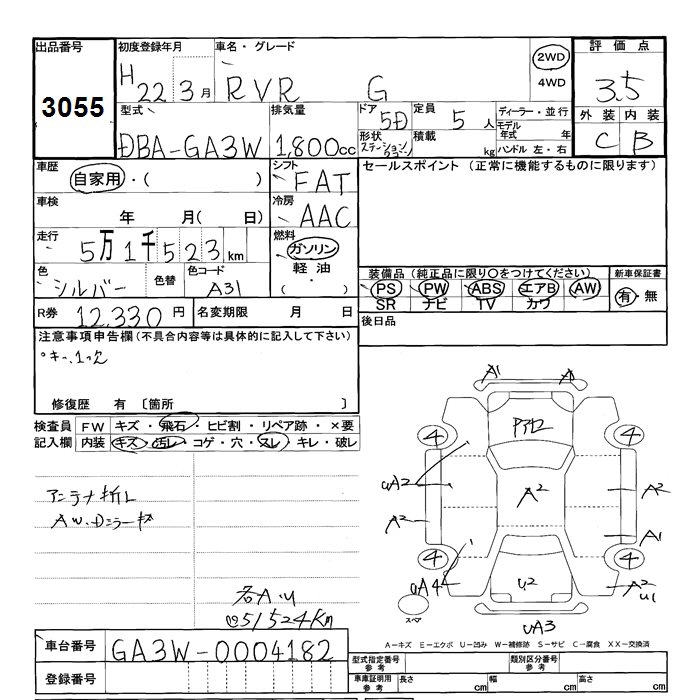 出品番号 初度登録年月 車名・グレード 評価点
3055 H 22 3月 RVR G 2WD 4WD 3.5
型式 排気量 ドア 5D 定員 5人 ディーラー・並行 外装 内装
DBA-GA3W 1,800cc 形状 ステーションワゴン 積載 kg モデル年式 年 ハンドル 左・右 C B
車歴 自家用・( ) シフト FAT セールスポイント (正常に機能するものに限ります)
車検 年 月( 日) 冷房 AAC
走行 5万1千523km 燃料 ガソリン 軽油 ( ・ )
色 シルバー 色替 色コード A31
装備品 (純正品に限り○をつけてください) 新車保証書
PS PW ABS エアB AW 有・無
SR ナビ TV カワ
R券 12,330円 名変期限 月 日 後日品
注意事項申告欄 (不具合内容等は具体的に記入して下さい)
キー1つ欠
修復歴 有 〔箇所 〕
検査員記入欄 FW キズ・飛石・ヒビ割・リペア跡・×要
内装 キズ・汚レ・コゲ・穴・スレ・キレ・破レ
アンテナ折レ
AW、Dミラーキズ
各A・U
51524Km
A1 A
4 4
UA2 A2 A2 A2
A1
4 4
UA4 U2 A2 U1
スペア UA3
A－キズ E－エクボ U－凹み W－補修跡 S－サビ C－腐食 XX－交換済
車台番号 GA3W-0004182
登録番号
型式指定番号 参考 類別区分番号 参考
車庫証明用 参考 長さ cm 幅 cm 高さ cm